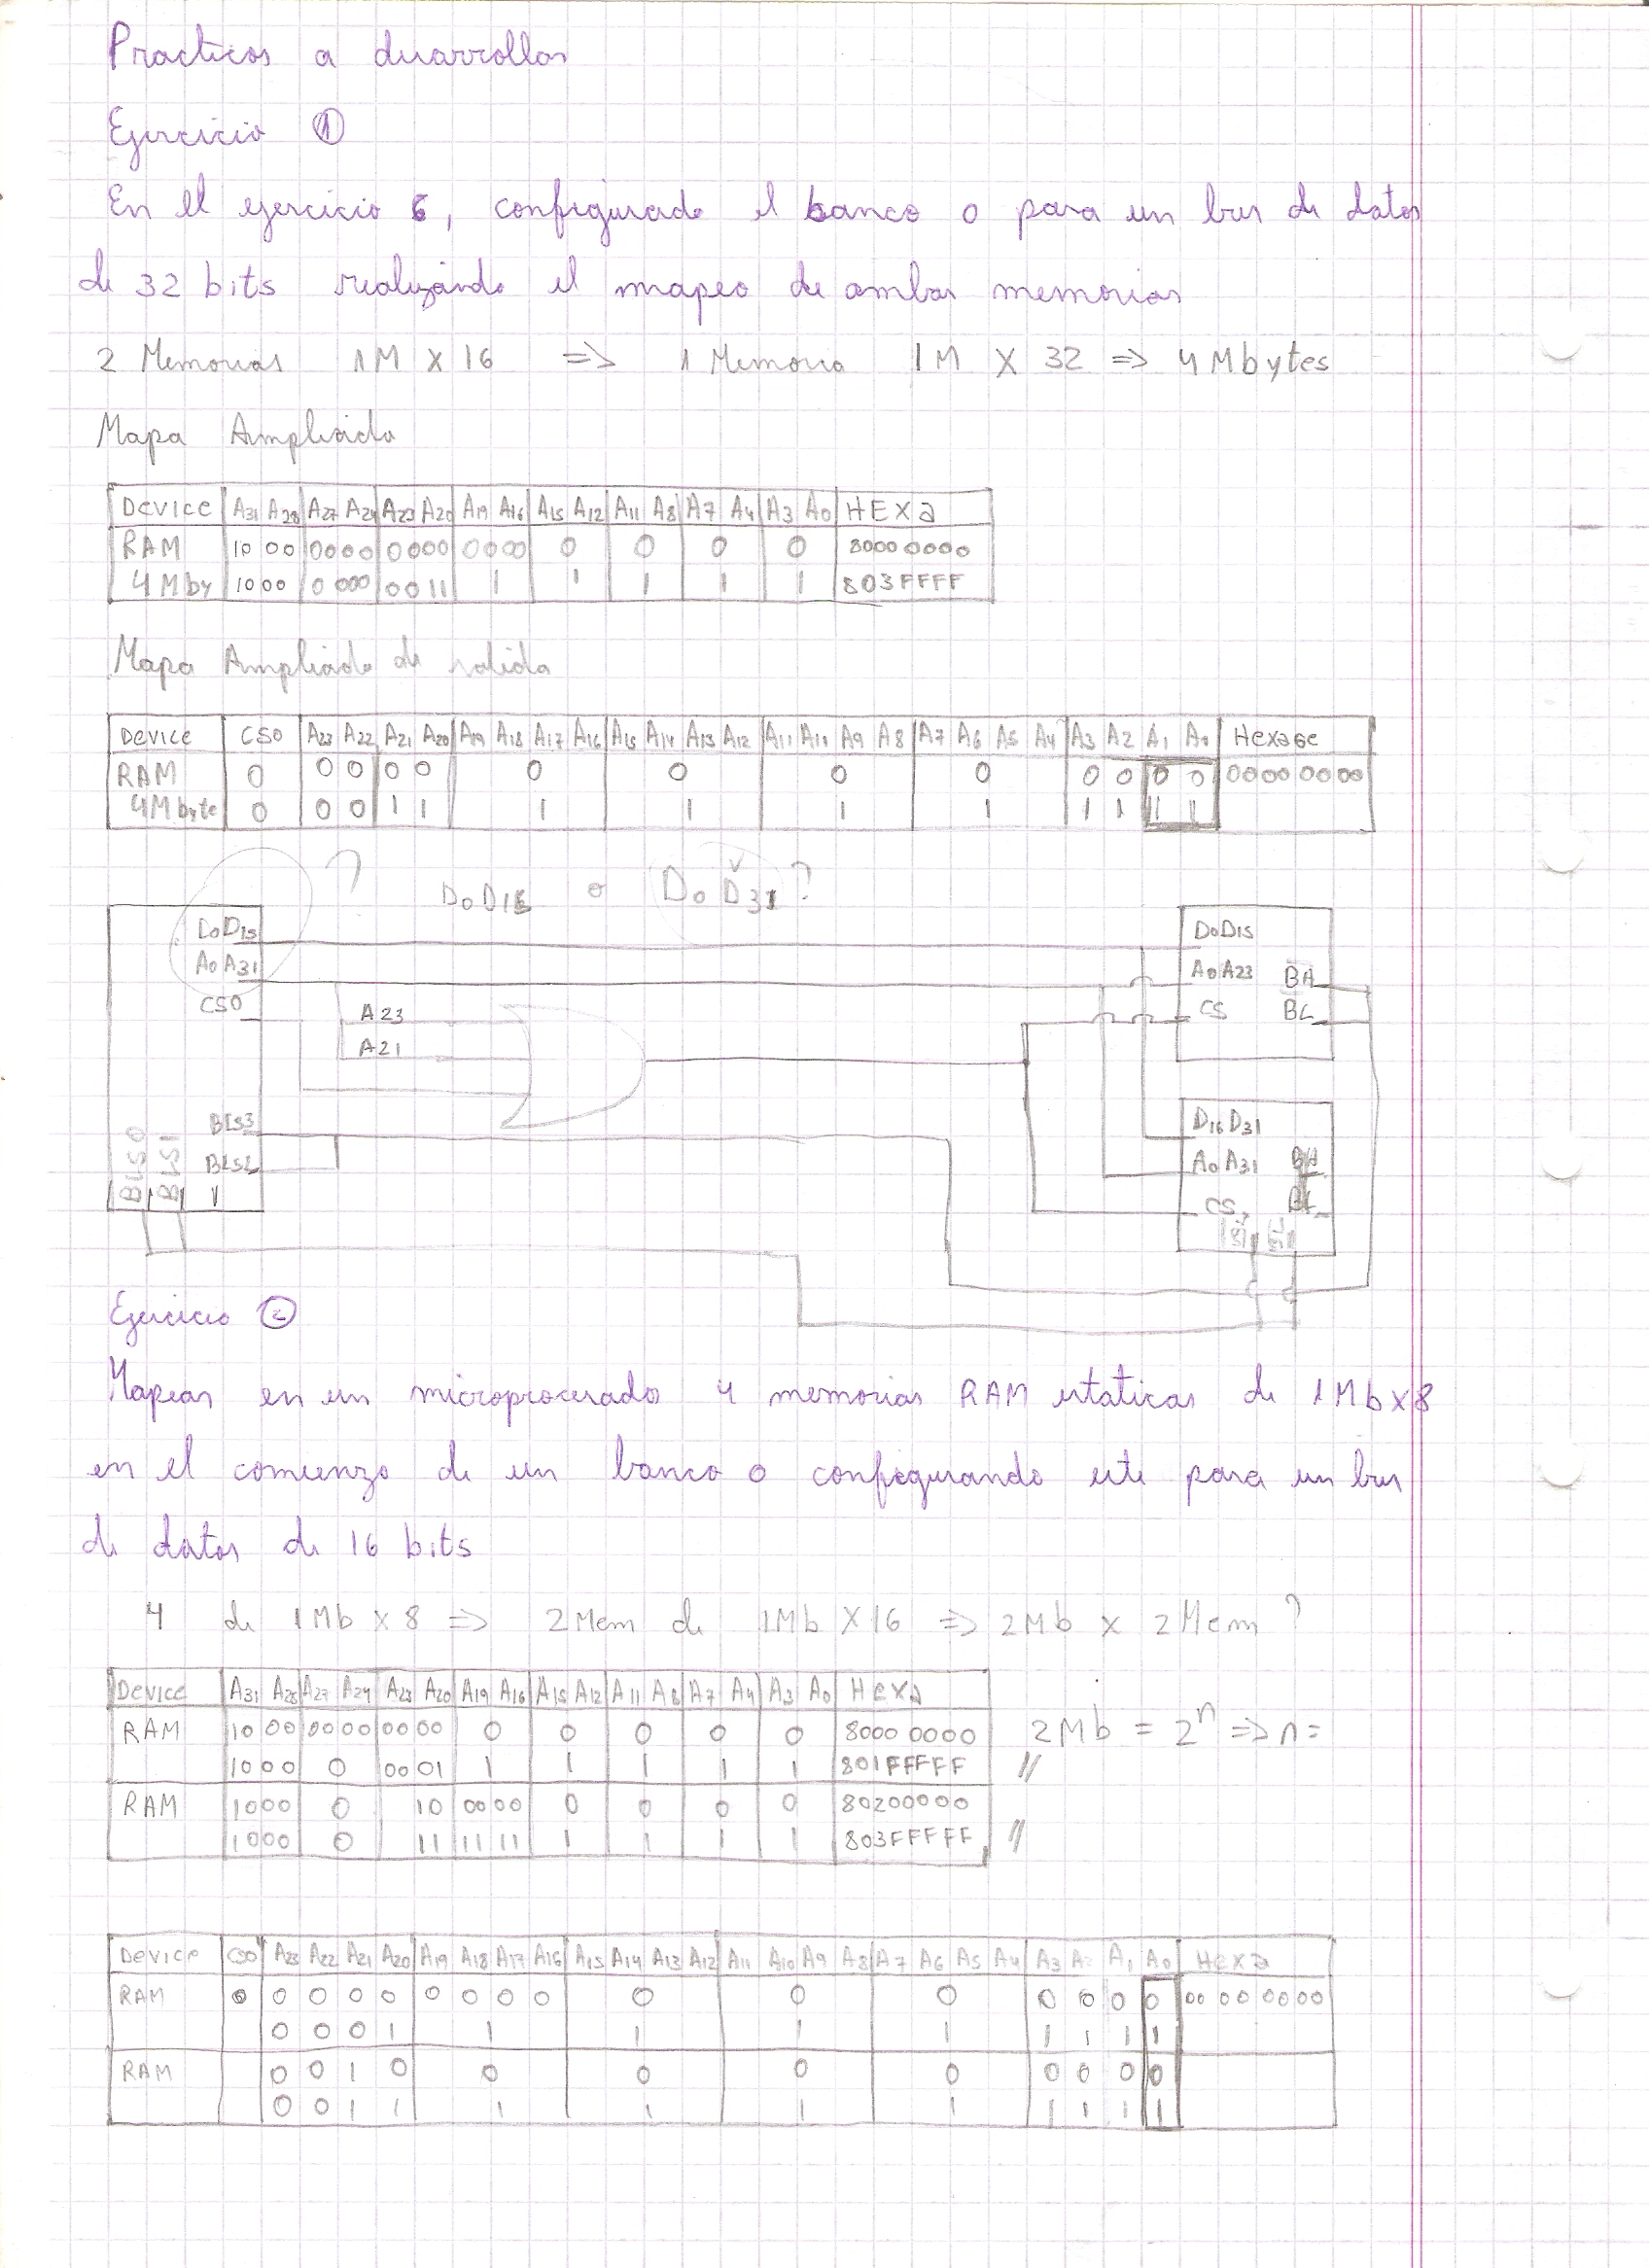 Practicos a desarrollar
Ejercicio 1
En el ejercicio 6, configurado el banco 0 para un bus de datos
de 32 bits realizando el mapeo de ambas memorias
2 Memorias 1M X 16 => 1 Memoria 1M X 32 => 4 Mbytes
Mapa Ampliado
Device A31 A28 A27 A24 A23 A20 A19 A16 A15 A12 A11 A8 A7 A4 A3 A0 HEXa
RAM 1000 0000 0000 0000 0 0 0 0 80000000
4 Mby 1000 0000 0011 1 1 1 1 1 803FFFF
Mapa Ampliado de salida
Device CS0 A23 A22 A21 A20 A19 A18 A17 A16 A15 A14 A13 A12 A11 A10 A9 A8 A7 A6 A5 A4 A3 A2 A1 A0
RAM 0 0 0 0 0 0 0 0 0 0 0 0 0 0000 0000
4Mbyte 0 0 0 1 1 1 1 1 1 1 1 1 1
? D0 D15 o D0 D31 ?
D0D15 D0D15
A0 A31 A0 A23 BA
CS0 A23 CS BL
A21
BLS3 D16 D31
BLS2 A0 A31
BLS0 BLS1 CS
Ejercicio 2
Mapear en un microprocesado 4 memorias RAM estaticas de 1Mb x 8
en el comienzo de un banco 0 configurando este para un bus
de datos de 16 bits
4 de 1Mb X 8 => 2Mem de 1Mb X 16 => 2Mb X 2Mem ?
Device A31 A28 A27 A24 A23 A20 A19 A16 A15 A12 A11 A8 A7 A4 A3 A0 HEXa
RAM 1000 0000 0000 0 0 0 0 0 8000 0000 2Mb = 2^n => n =
1000 0 0001 1 1 1 1 1 801FFFFF //
RAM 1000 0 10 0000 0 0 0 0 80200000
1000 0 11 1111 1 1 1 1 803FFFFF //
Device CS0 A23 A22 A21 A20 A19 A18 A17 A16 A15 A14 A13 A12 A11 A10 A9 A8 A7 A6 A5 A4 A3 A2 A1 A0 Hexa
RAM 0 0 0 0 0 0 0 0 0 0 0 0 0 0 0 0 00 00 0000
0 0 0 1 1 1 1 1 1 1 1 1
RAM 0 0 1 0 0 0 0 0 0 0 0 0
0 0 1 1 1 1 1 1 1 1 1 1